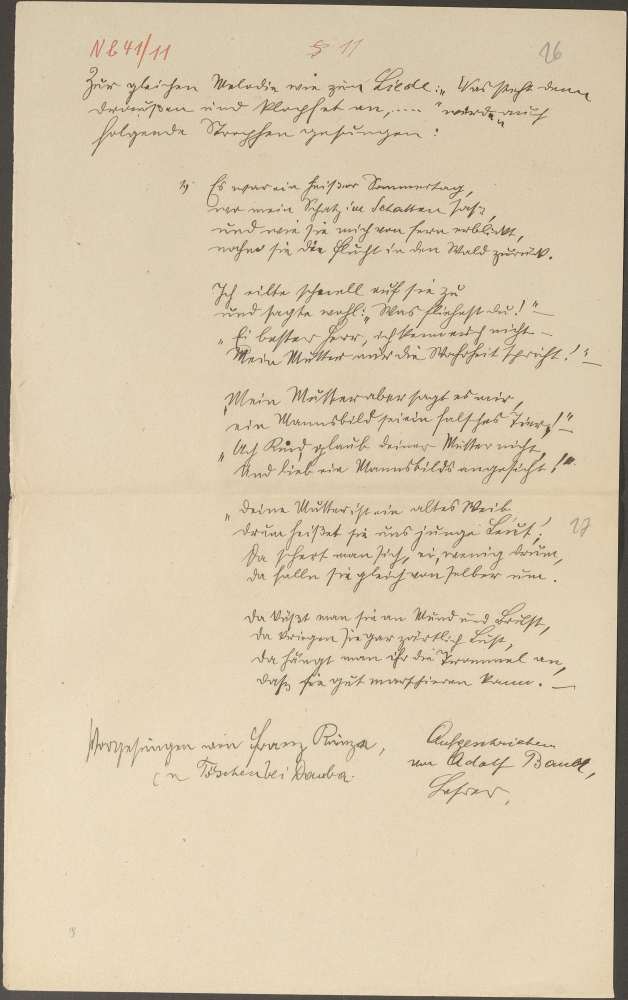 NB 41/11
§ 11
26
Zur gleichen Melodie wie zum Liede: „Was steht denn
draußen und klopfet an, .... " werden auch
folgende Strophen gesungen:
Es war ein heißer Sommertag,
wo mein Schatz im Schatten saß,
und wie sie mich von fern erblickt,
nahm sie die Flucht in den Wald zurück.
Ich eilte schnell auf sie zu
und sagte wohl: „Was fliehest du!" —
„Ei bester Herr, ich kenn euch nicht —
Mein Mutter nur die Wahrheit spricht!" —
„Mein Mutter aber sagt es mir,
ein Mannsbild sei ein falsches Tier!" —
„Ach Kind, glaub deiner Mutter nicht,
Und lieb ein Mannsbilds angesicht!"
„Deine Mutter ist ein altes Weib
drum heißet sie uns junge Leut!
27
Da schert man sich, ei, wenig drum,
da falln sie gleich von selber um.
Da küßt man sie an Mund und Brust,
da kriegen sie gar zärtlich Lust,
da hängt man ihr die Trommel an,
daß sie gut marschieren kann. —
Vorgesungen von Franz Künza,
in Töschen bei Dauba.
Aufgeschrieben
von Adolf
Lehrer,